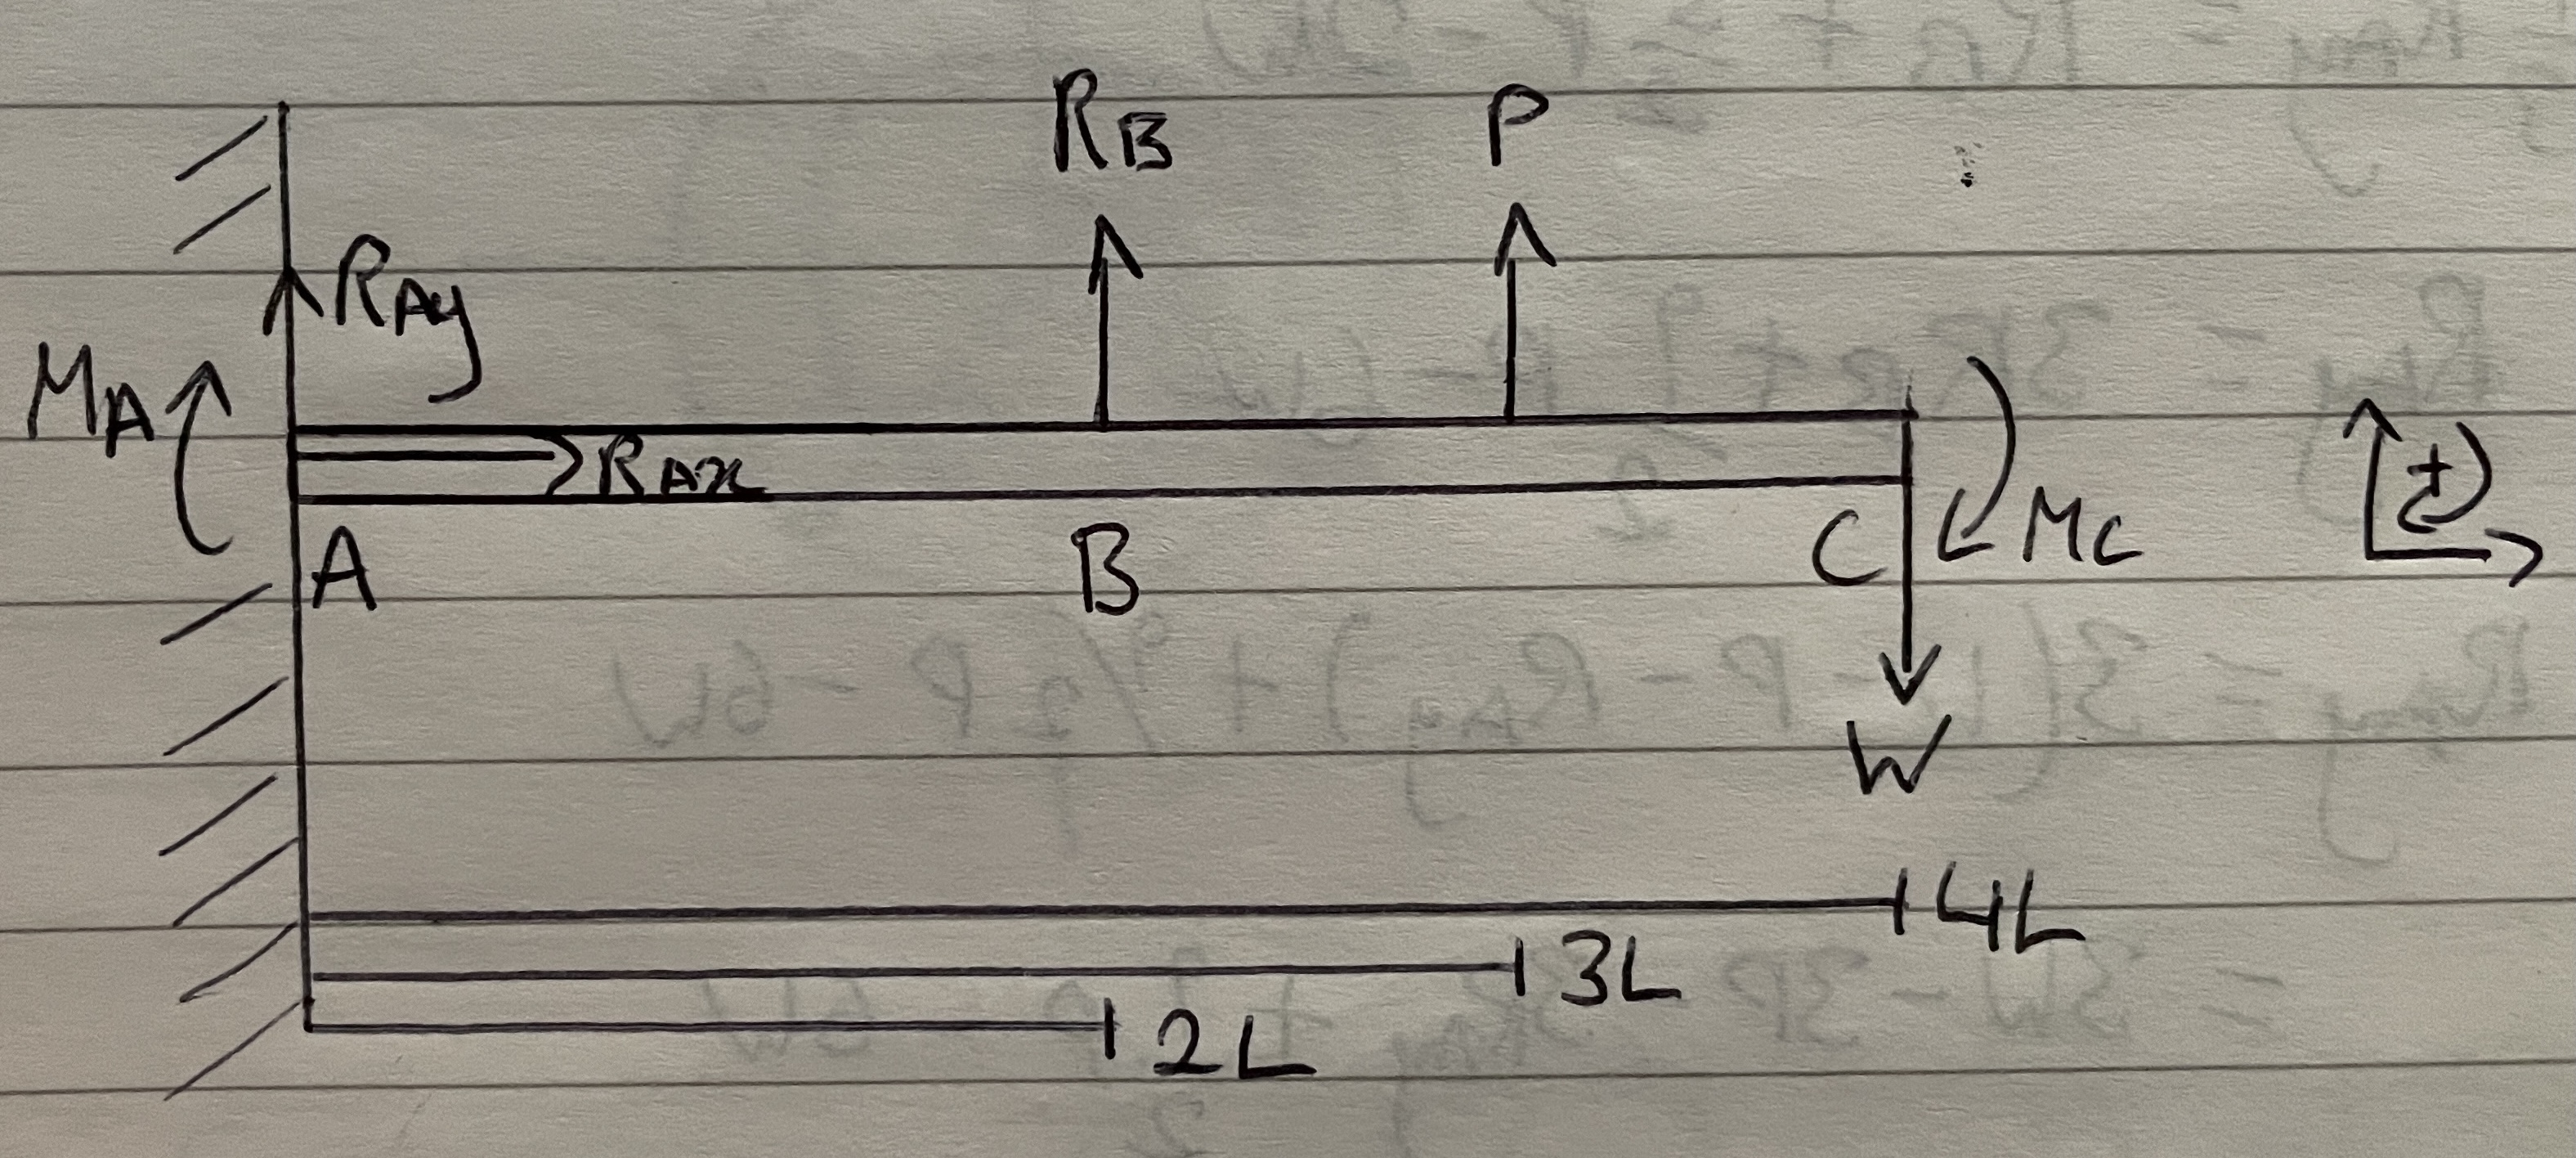 R_B P
R_Ay
M_A
R_Ax
A B C M_C +
W
4L
3L
2L